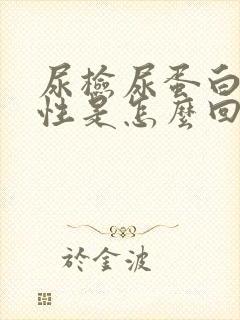 尿檢尿蛋白
性是怎麼回
於金波